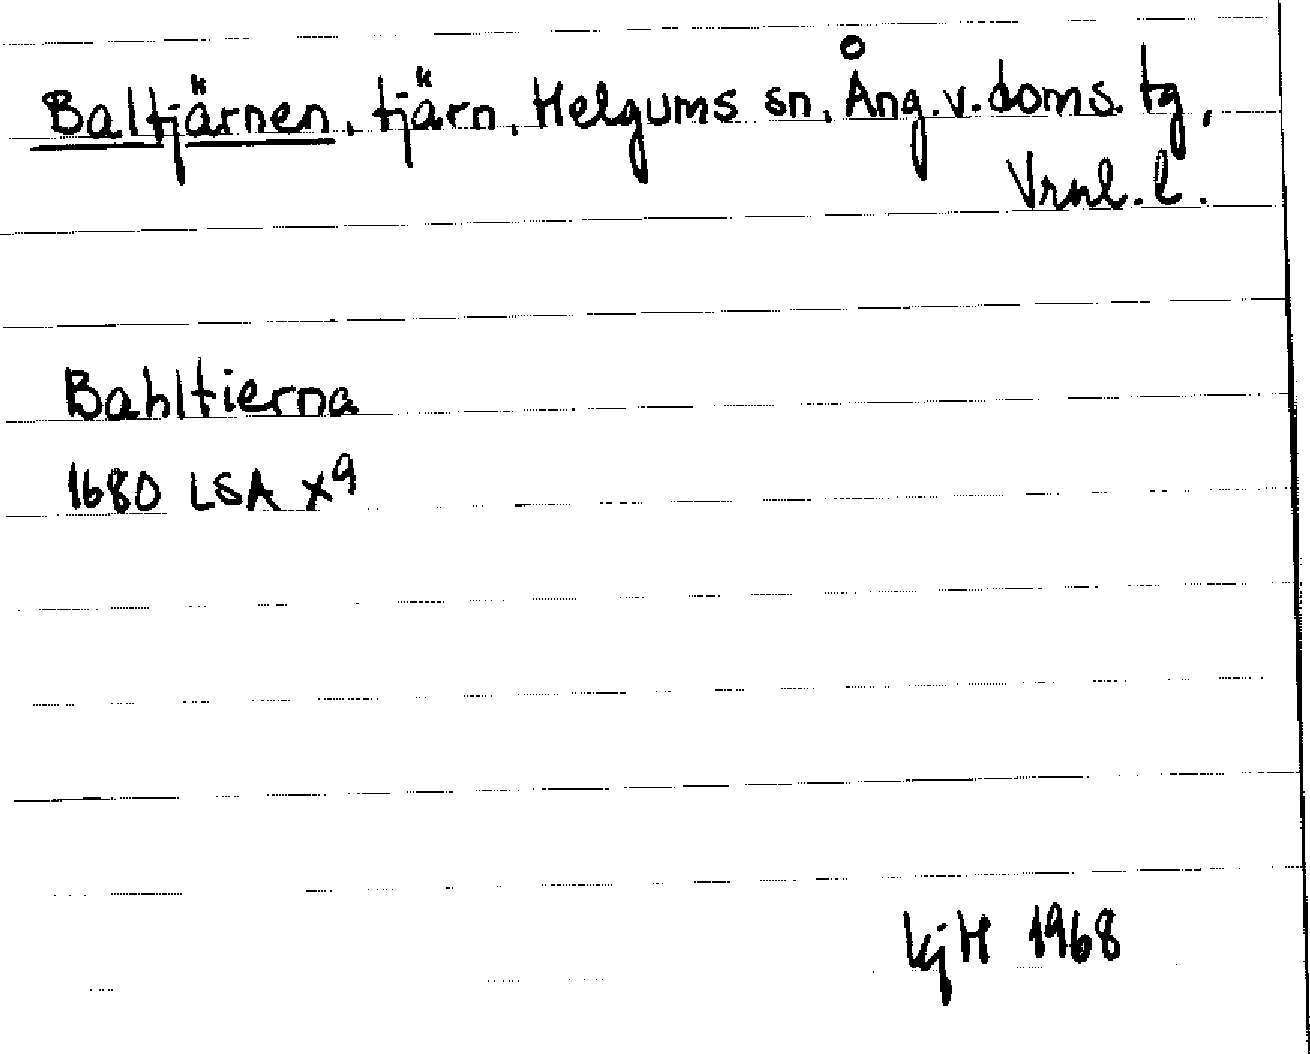 Baltjärnen, tjärn, Helgums sn, Ång.v.doms.tg,
Vrnl.l.
Bahltierna
1680 LSA X9
KjH 1968